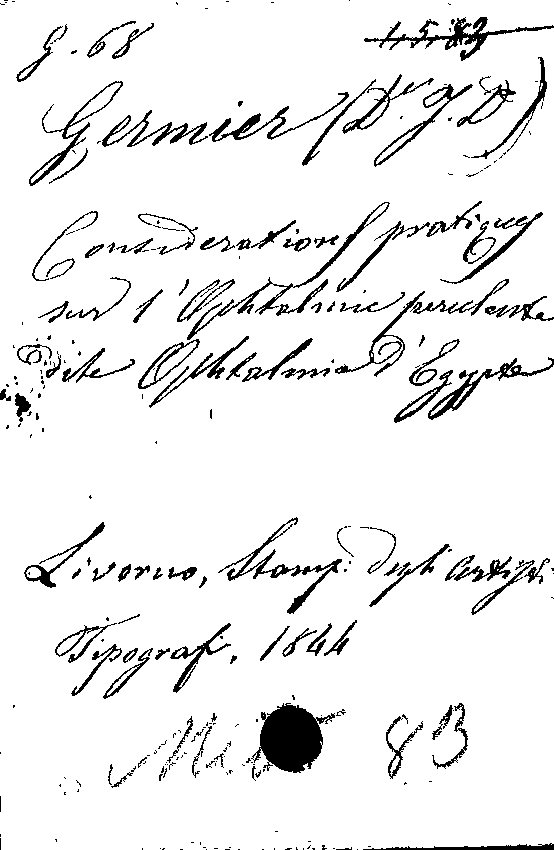 G. 68 1.5.83
Germier (Dr. J. D)
Considerations pratiques
sur l'Ophtalmie purulente
dite Ophtalmia d'Egypte
Livorno, Stamp: degli Artisti
Tipografi, 1844
83